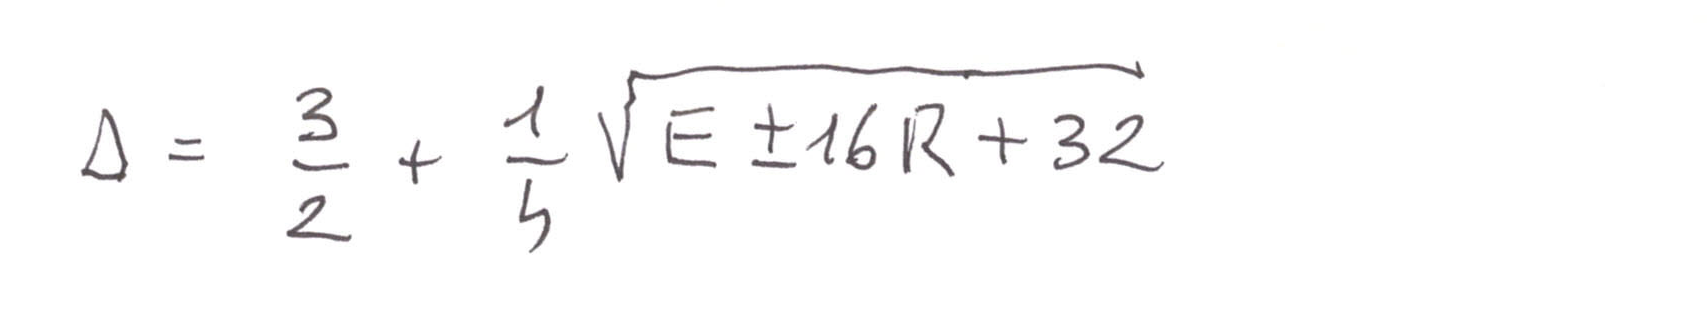 Δ = 3/2 + 1/4 √(E ± 16R + 32)